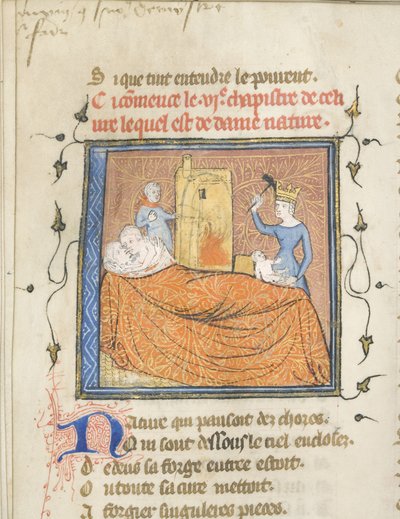 Si que tuit entendre le povent.
Ci comence le .vi.e chapistre de ce li
ure lequel est de dame nature.
Nature qui pansoit des choses.
Qui sont dessous le ciel encloses.
Dedens sa forge entree estoit.
Ou toute sa cure mettoit.
A forgier singuleres pieces.